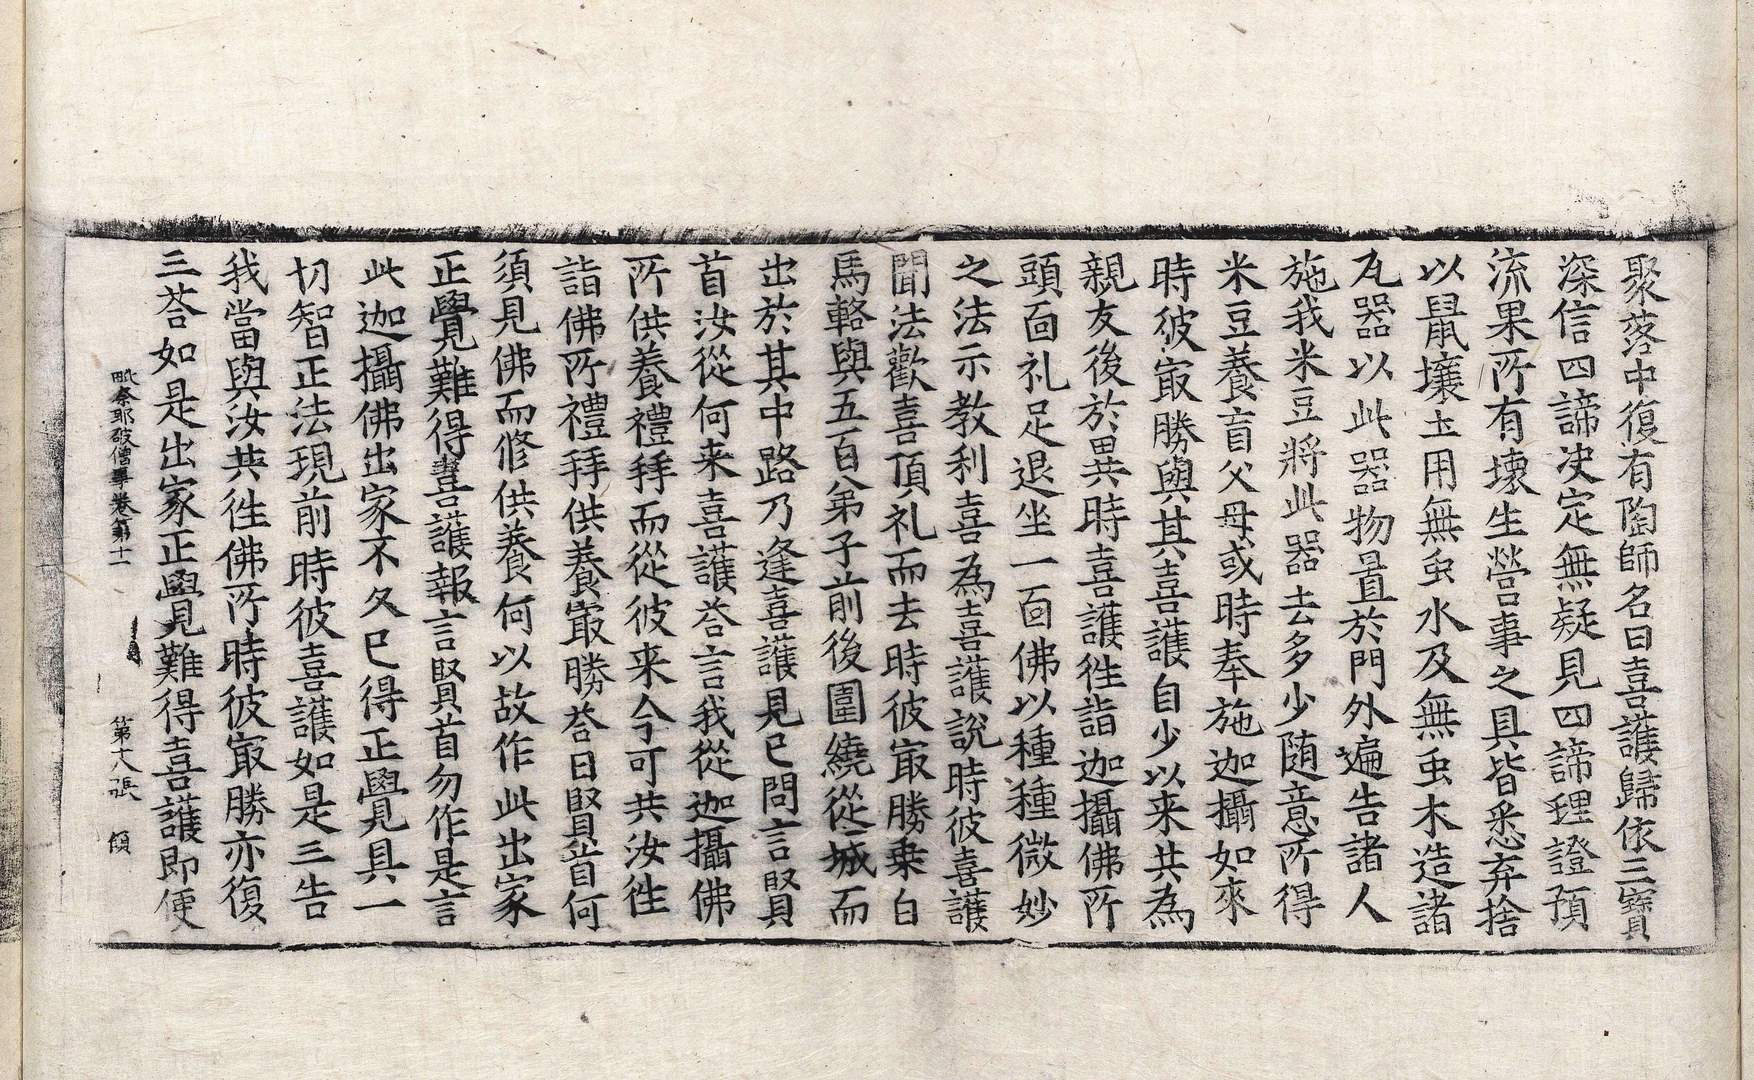 聚落中復有陶師名曰喜護歸依三寶
深信四諦决定無疑見四諦理證預
流果所有壞生營事之具皆悉弃捨
以鼠壤土用無虫水及無虫木造諸
瓦器以此器物置於門外遍告諸人
施我米豆將此器去多少随意所得
米豆養盲父母或時奉施迦攝如來
時彼㝡勝與其喜護自少以来共為
親友後於異時喜護徃詣迦攝佛所
頭面礼足退坐一面佛以種種微妙
之法示教利喜為喜護說時彼喜護
聞法歡喜頂礼而去時彼㝡勝乗白
馬輅與五百弟子前後圍繞從城而
出於其中路乃逢喜護見已問言賢
首汝從何来喜護荅言我從迦攝佛
所供養禮拜而從彼来今可共汝徃
詣佛所禮拜供養㝡勝荅曰賢首何
須見佛而修供養何以故作此出家
正覺難得喜護報言賢首勿作是言
此迦攝佛出家不久已得正覺具一
切智正法現前時彼喜護如是三告
我當與汝共徃佛所時彼㝡勝亦復
三荅如是出家正覺難得喜護即便
毗奈耶破僧事卷第十一 第十八張 頎